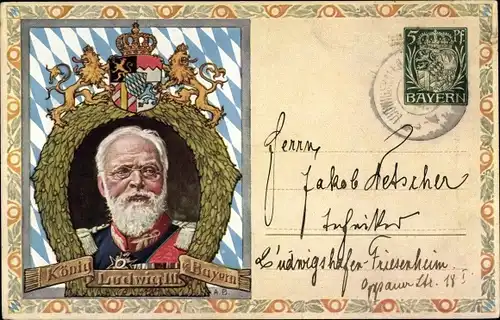 König
Ludwig III.
v. Bayern
A.B.
5 Pf
BAYERN
Herrn
Jakob Netscher
Techniker
Ludwigshafen-Friesenheim
Oppauer Str. 18 I